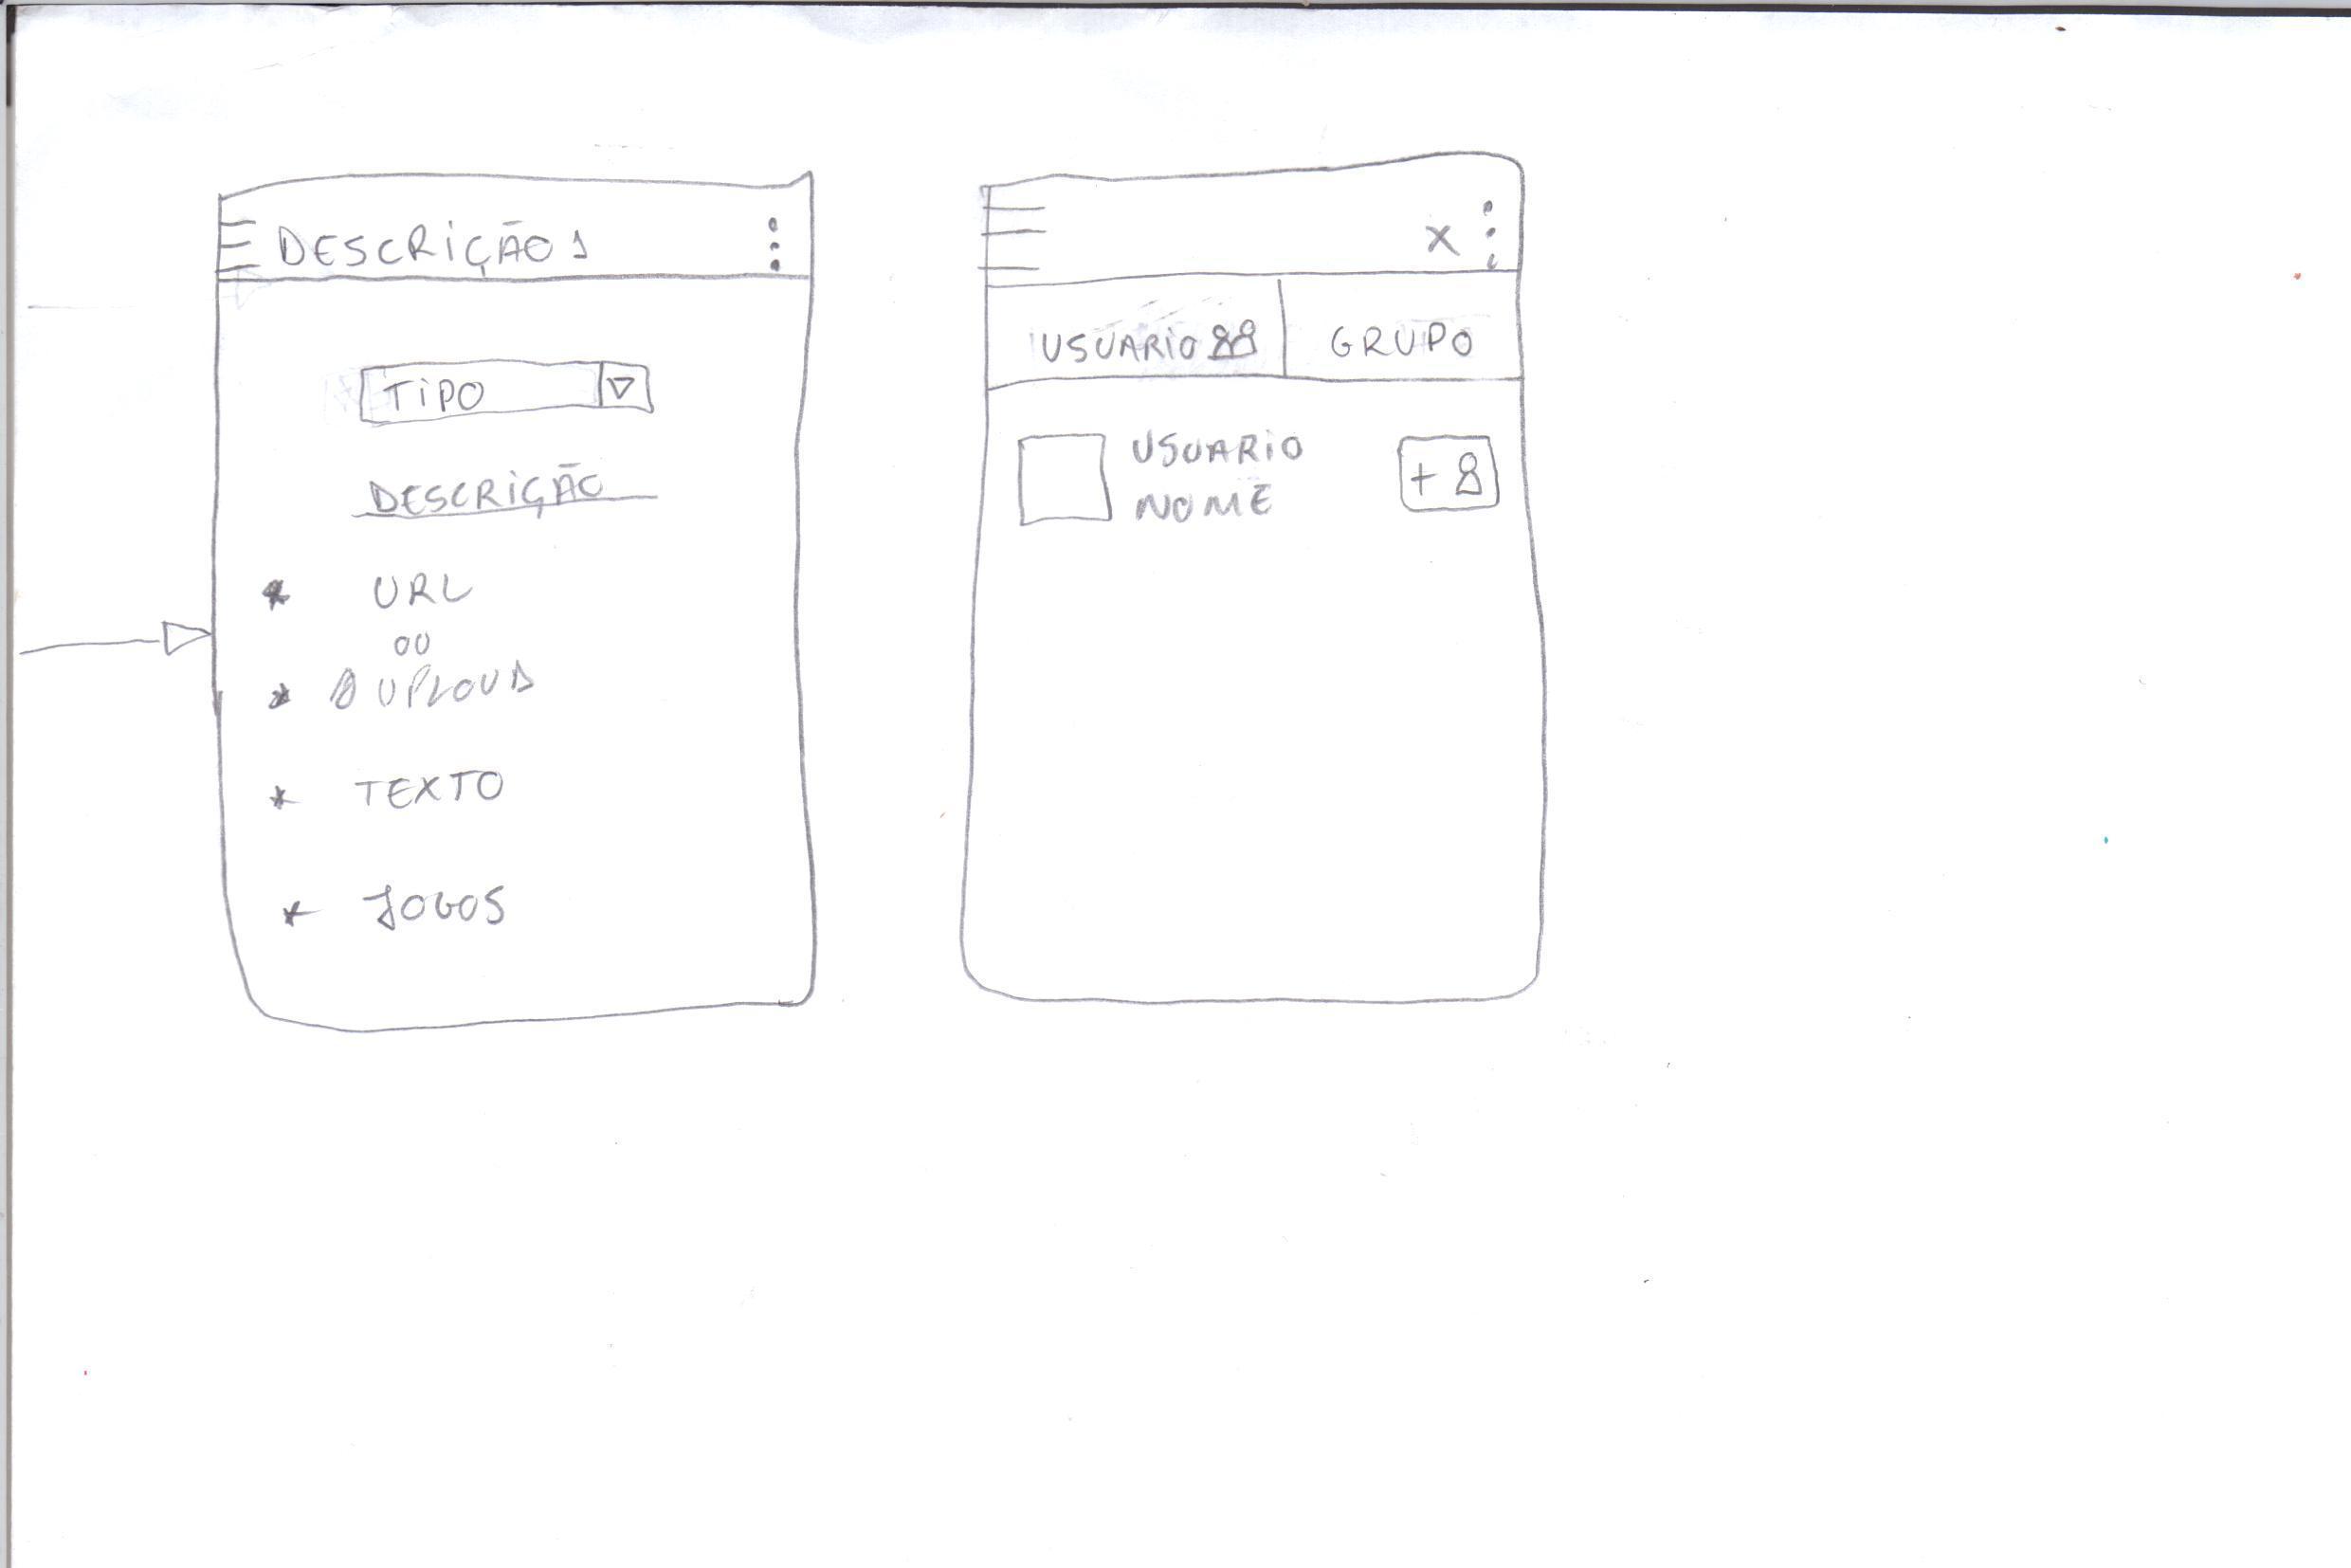 DESCRIÇÃO 1
TIPO
DESCRIÇÃO
* URL
OU
* UPLOUD
* TEXTO
* JOGOS
X
USUARIO
GRUPO
USUARIO
NOME
+